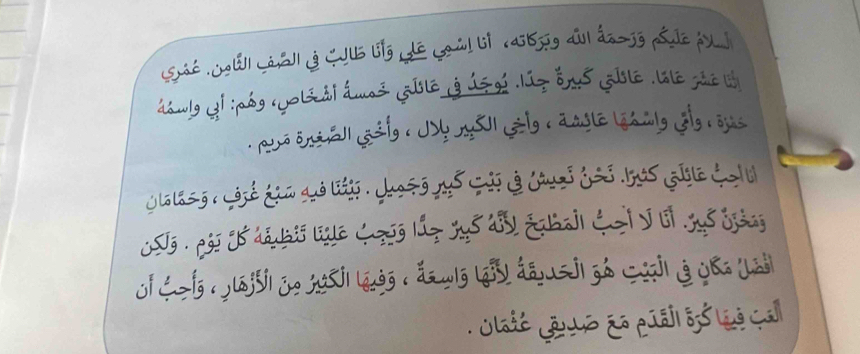 السلام عليكم ورحمة الله وبركاته، أنا إسمي علي وأنا طالب في الصف الثامن. عمري
اثنا عشر عاما. عائلتي كبيرة جدا. يوجد في عائلتي خمسة أشخاص، وهم: أبي واسمه
حمزة ، وأمي واسمها عائشة ، وأخي الكبير بلال ، وأختي الصغيرة مريم .
أنا أحب عائلتي كثيرا. نحن نعيش في بيت كبير وجميل . بيتنا فيه سبع غرف ، وحمامان
ومخزن كبير. أنا لا أحب المطبخ لأنه كبير جدا ويجب علينا تنظيفه كل يوم . ولكن
أفضل مكان في البيت هو الحديقة لأنها واسعة ، وفيها الكثير من الأزهار ، وأحب أن
ألعب فيها كرة القدم مع صديقي عثمان .